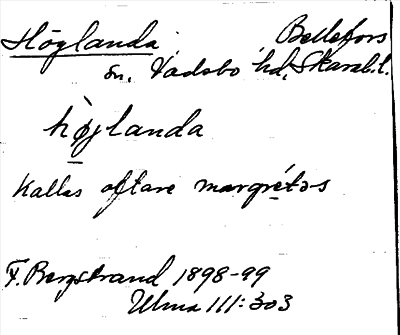 Höglanda Bellefors
sn, Vadsbo hd, Skarab. l.
hø̀glanda
Kallas oftare margrétəs
F. Bergstrand 1898-99
Ulma 111:303